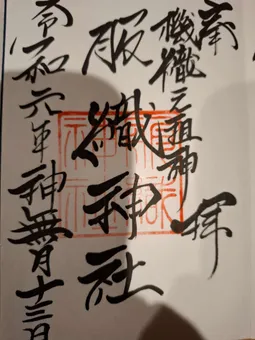 奉拝
機織元祖神
服織神社
令和元年神無月十三日